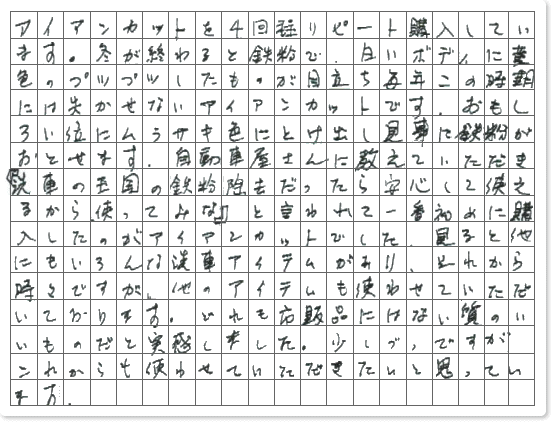 アイアンカットを4回程リピート購入してい
ます。冬が終わると鉄粉で、白いボディに黄
色のプツプツしたものが目立ち毎年この時期
には欠かせないアイアンカットです。おもし
ろい位にムラサキ色にとけ出し見事に鉄粉が
おとせます。自動車屋さんに教えていただき
『洗車の王国の鉄粉除去だったら安心して使え
るから使ってみな』と言われて一番初めに購
入したのがアイアンカットでした。見ると他
にもいろんな洗車アイテムがあり、それから
時々ですが、他のアイテムも使わせていただ
いております。どれも市販品にはない質のい
いものだと実感しました。少しづつですが
これからも使わせていただきたいと思ってい
ます。